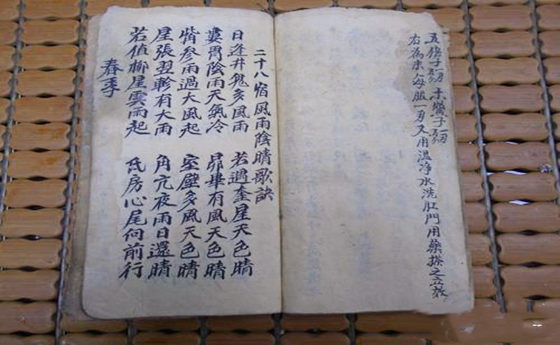 五倍子 木鱉子
右為末每服一又用溫淨水洗肛門用藥搽之立效
二十八宿風雨陰晴歌訣
日逢井鬼多風雨 若遇奎星天色晴
婁胃陰雨天氣冷 昴畢有風天色晴
觜參雨過大風起 室壁多風天色晴
張翌軫有大雨 角亢夜雨日還晴
若值柳星雲雨起 氐房心尾向前行
春季